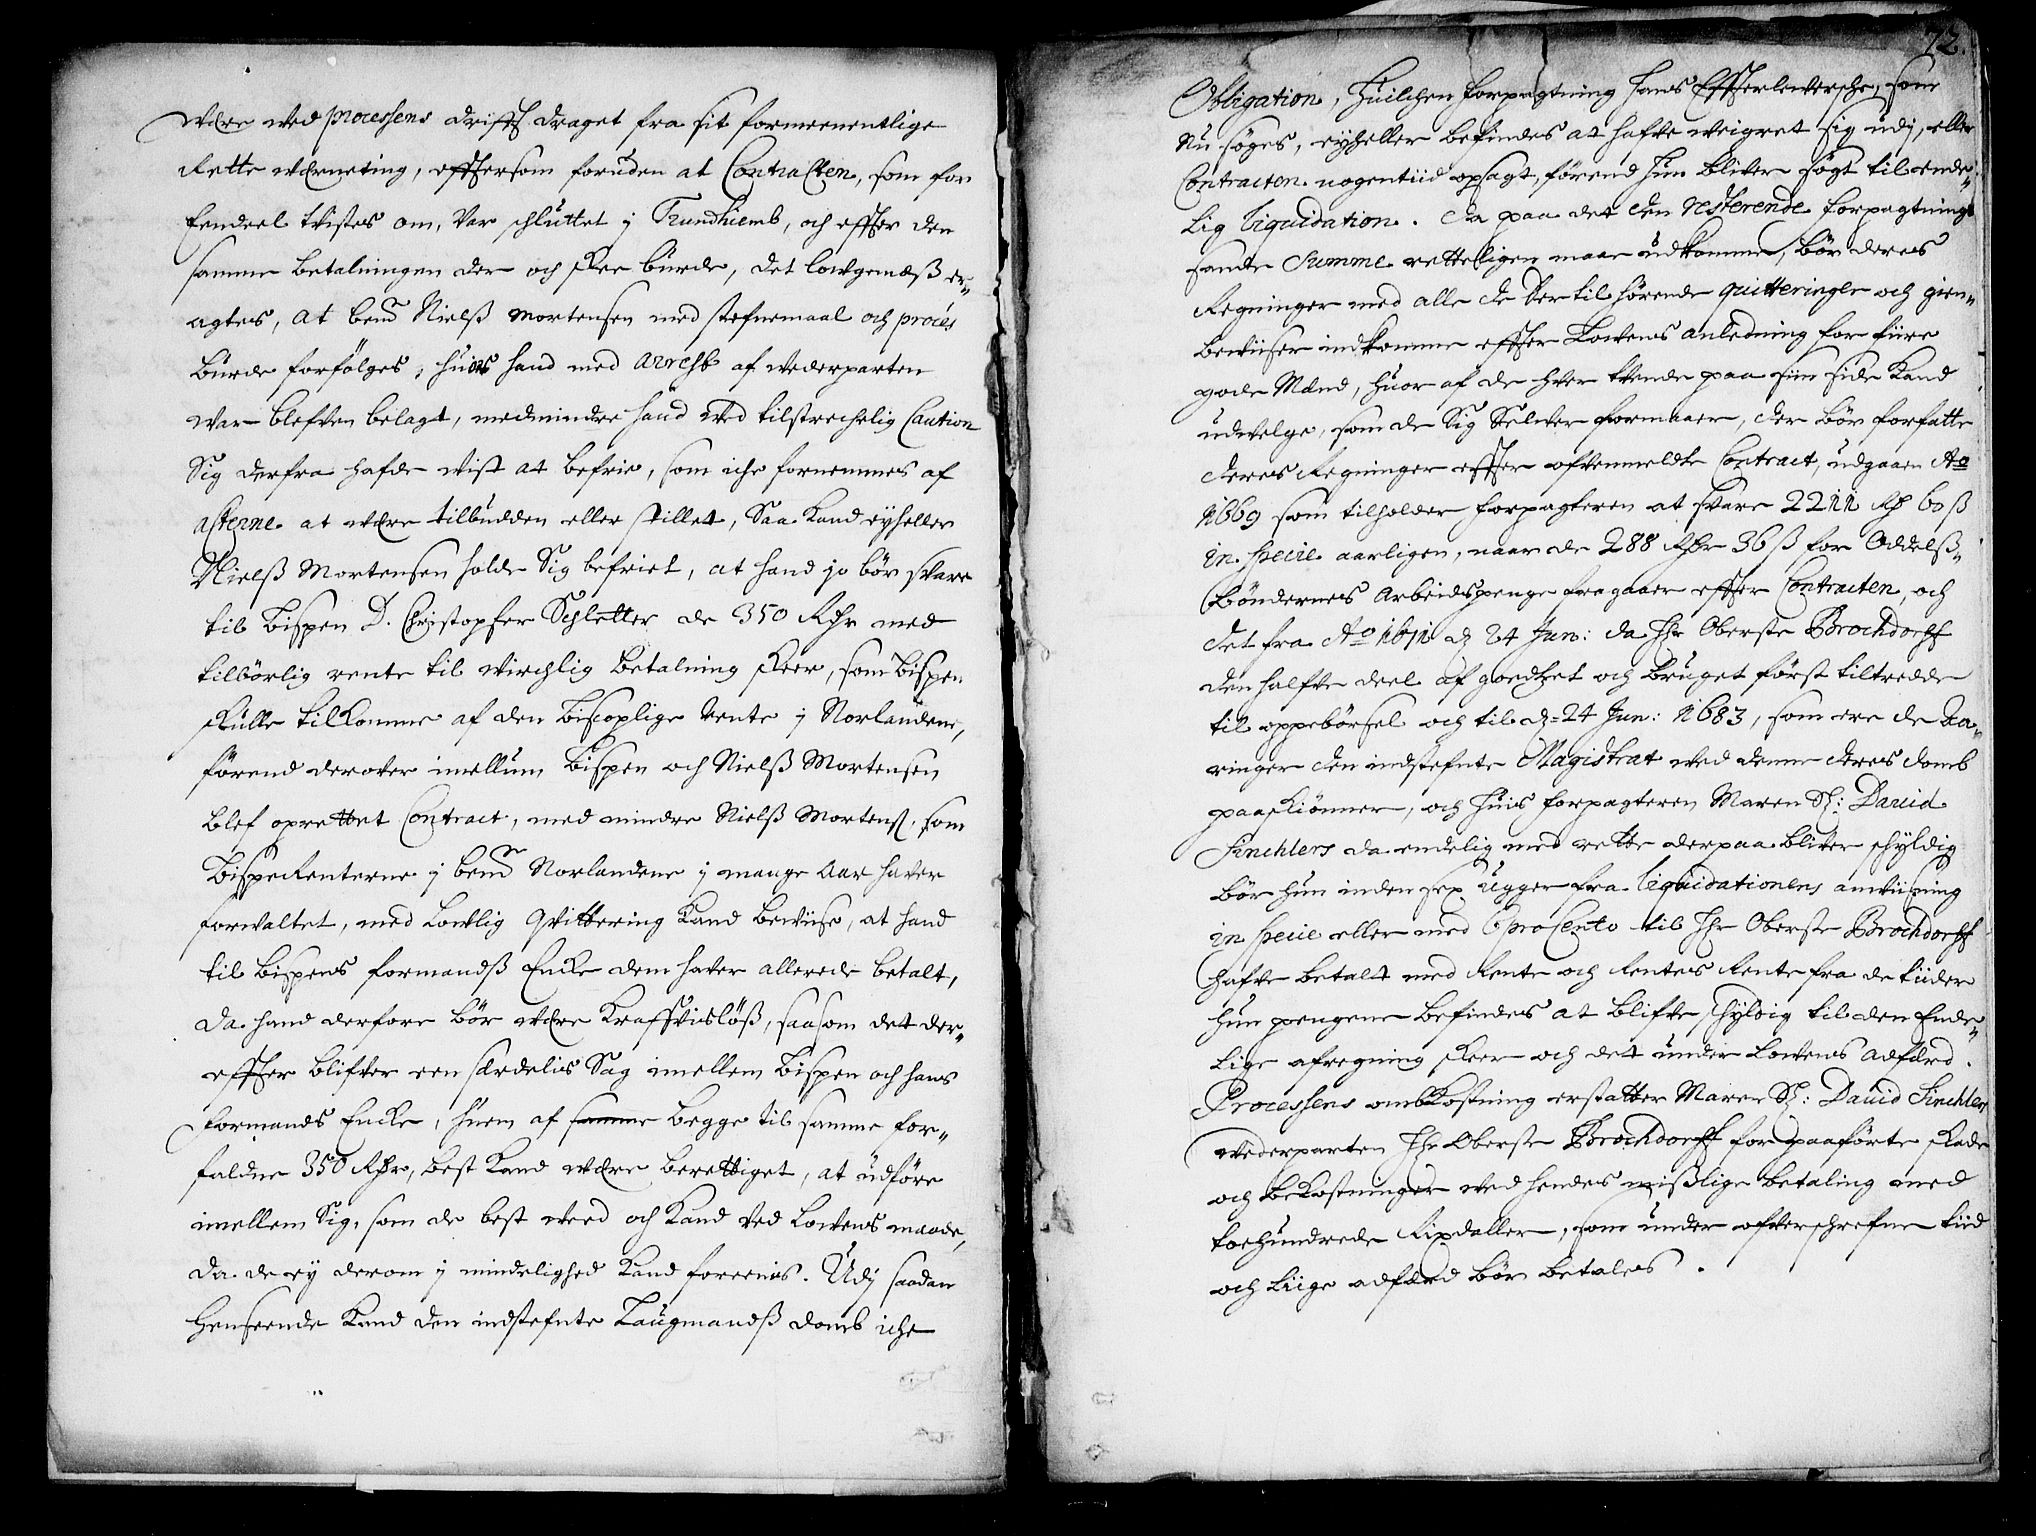 være ved processens drifft draget fra sit formeenentlige
Rette værneting, effthersom foruden at Contracten, som for
Eendeel tvistes om, var schluttet j Trundhiemb, och effter den
samme betalningen der och skee burde, det lowgemæß er„
agtes, at bemᵗᵉ Nielß Mortensen med stefnemaal och proces
burde forfölges, huis hand med Arrest af wederparten
war blefven belagt, medmindre hand ved tilstrechelig Caution
Sig derfra hafde vist at befrie, som iche fornemmes af
acterne at være tilbudden eller stillet, Saa kand eyheller
Nielß Mortensen holde Sig befriet, at hand jo bör svare
til Bispen D. Christopfer Schletter de 350 Rdr med
tilbörlig rente til wirchlig betalning skeer, som Bispen
skulle tilkomme af den Biscoplige Rente j Norlandene,
förend derover imellum Bispen och Nielß Mortensen
blef oprettet Contract, med mindre Nielß Mortens. som
BispeRenterne j bemᵗᵉ Norlandene j mange Aar haver
forvaltet, med Lowlig Qvittering kand beviise, at hand
til Bispens formandß Encke dem haver allerede betalt,
da hand derfore bör være Krafftislöß, saasom det der„
effther blifver een særdelis Sag imellem Bispen och hans
formands Encke, huem af samme begge til samme for„
faldne 350 Rdr, best kand være berettiget, at udföre
imellem Sig, som de best weed och kand ved Lowens maade,
da de ey derom j mindelighed kand foreenis. Udj saadan
henseende kand den indstefnte Laugmandß domb iche
72.
Obligation, Huilchen forpagtning hans Efftherleversche, som
nu söges, eyheller befindes at hafve weigret sig udj, eller
Contracten nogentiid opsagt, förend hun bliver sögt til ende„
lig liquidation. Da paa det den resterende forpagtnings
sande Summe retteligen maae udkomme, bör deres
Regninger med alle de dertil hörende qvitteringer och gien„
beviiser indkomme effther Lowens anledning for fiire
gode Mænd, huor af de hver tvende paa siin side kand
udvelge, som de Sig Selver formaaer, der bör forfatte
deres Regninger effther oftenmeldte Contract, udgaaen Aᵒ
1669 som tilholder forpagteren at svare 2211 Rd 60 ß
in specie aarligen, naar de 288 Rdr 36 ß for Oddelß„
böndernes Arbeidspenge fragaaer effther Contracten, och
det fra Aᵒ 1671 d 24 Jun: da Hr Oberste Brochdorff
den halfve deel af goedset och bruget först tiltredde
til oppebörsel och til d. 24 Jun: 1683, som ere de Aa„
ringer den indstefnte Magistrat ved denne deres domb
paaskiönner, och huis forpagteren Maren Sl: David
Sinchlers da endelig med rette derpaa bliver schyldig
bör hun inden sex Ugger fra liquidationens anviisning
in specie eller med 6 proCento til Hr Oberste Brochdorff
hafve betalt med Rente och Rentes Rente fra de tiider
hun pengene befindes at blifve schyldig til den Ende„
lige afregning skeer och det under Lowens adfærd.
Processens ombkostning erstatter Maren Sl: David Sinchlers
wederparten Hr Oberste Brochdorff for paaförte skade
och bekostninger ved hendes mißlige betaling med
toehundrede Rixdaller, som under ofverschrefne tiid
och liige adfærd bör betales.